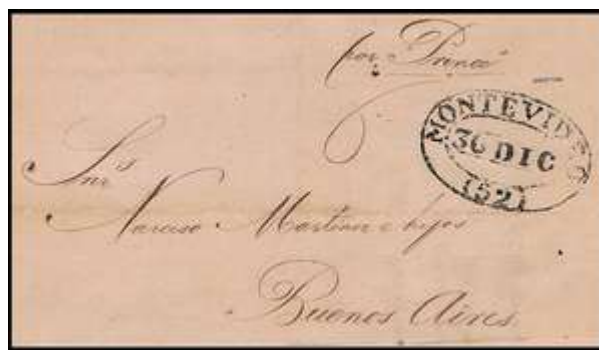 por Prince
MONTEVIDEO
30 DIC
(52)
Snrs
Narciso Martinez e hijos
Buenos Aires